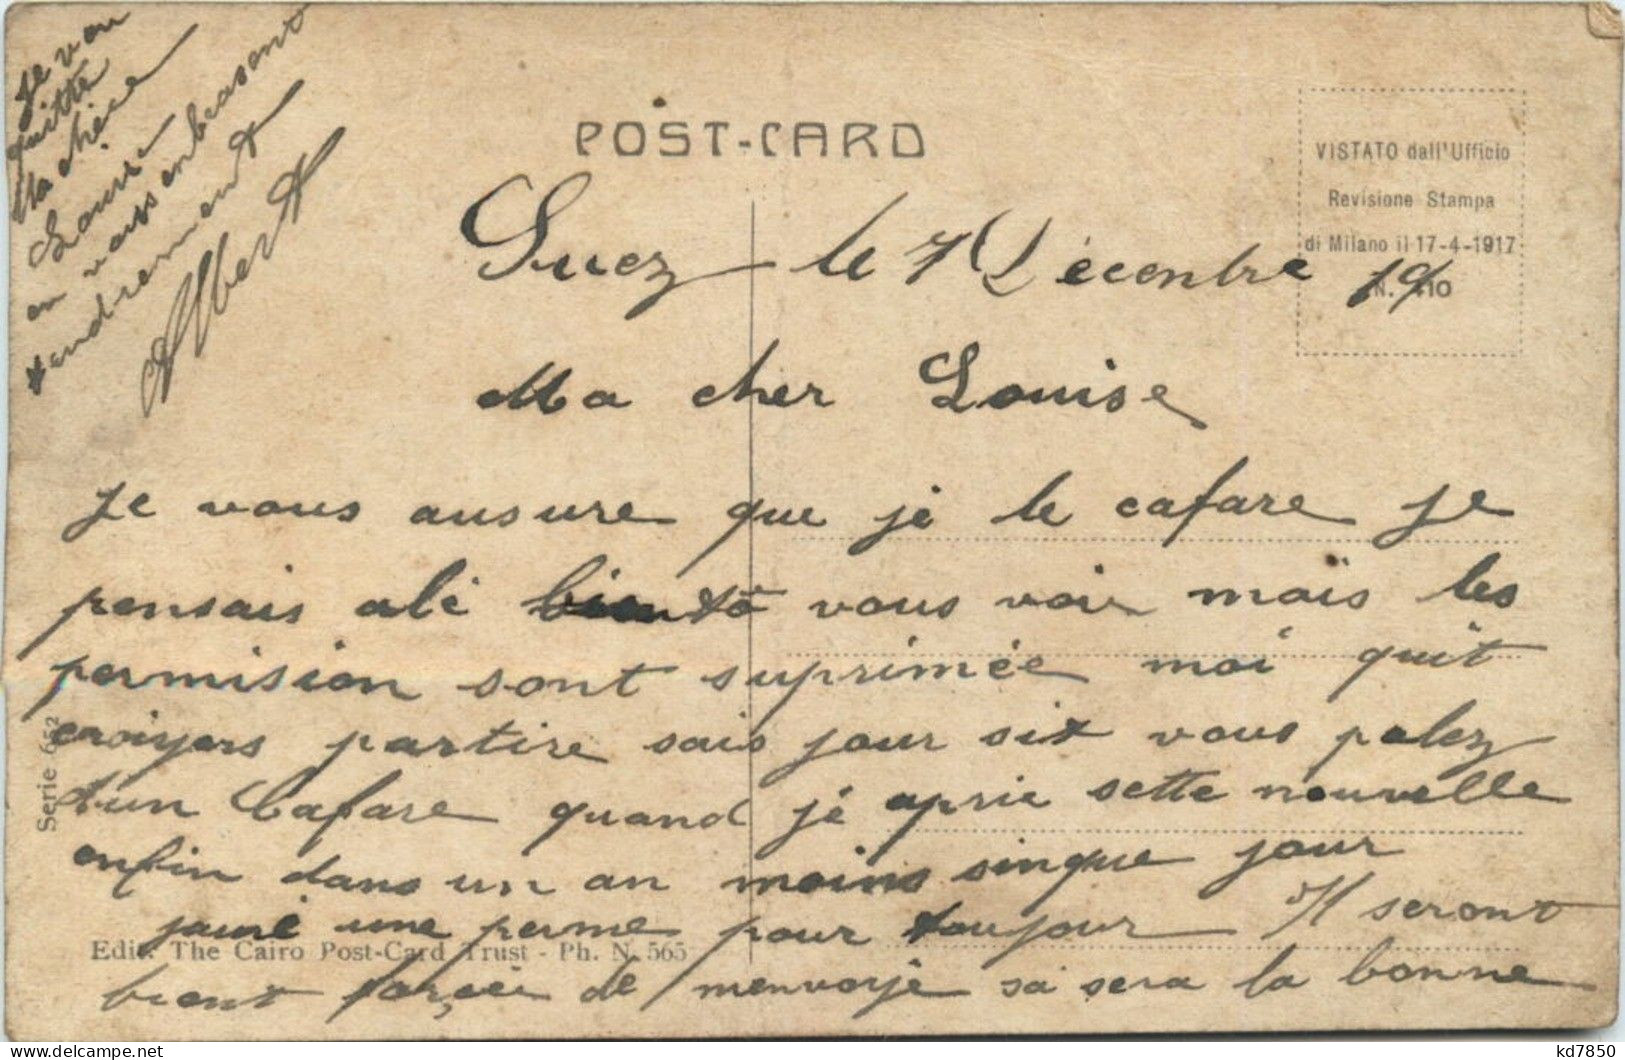 POST-CARD
VISTATO dall'Ufficio
Revisione Stampa
di Milano il 17-4-1917
N. 110
Suez le 7 Décenbre 19
Ma cher Louise
Je vous ausure que jé le cafare je
pensais alé bientô vous voir maïs les
permision sont suprimée moi quit
croiyers partire sais jour sit vous palez
d'un Cafare quand jé aprie sette nouvelle
enfin dans un an moins sinque jour
jauré une perme pour toujour Il seront
bient forcée de menvoije sa sera la bonne
Je vou
quitte
Ma chère
Louise
en vous enbrasent
tendrement
Albert
Serie 652
Edit. The Cairo Post-Card Trust - Ph. N. 565
kd7850